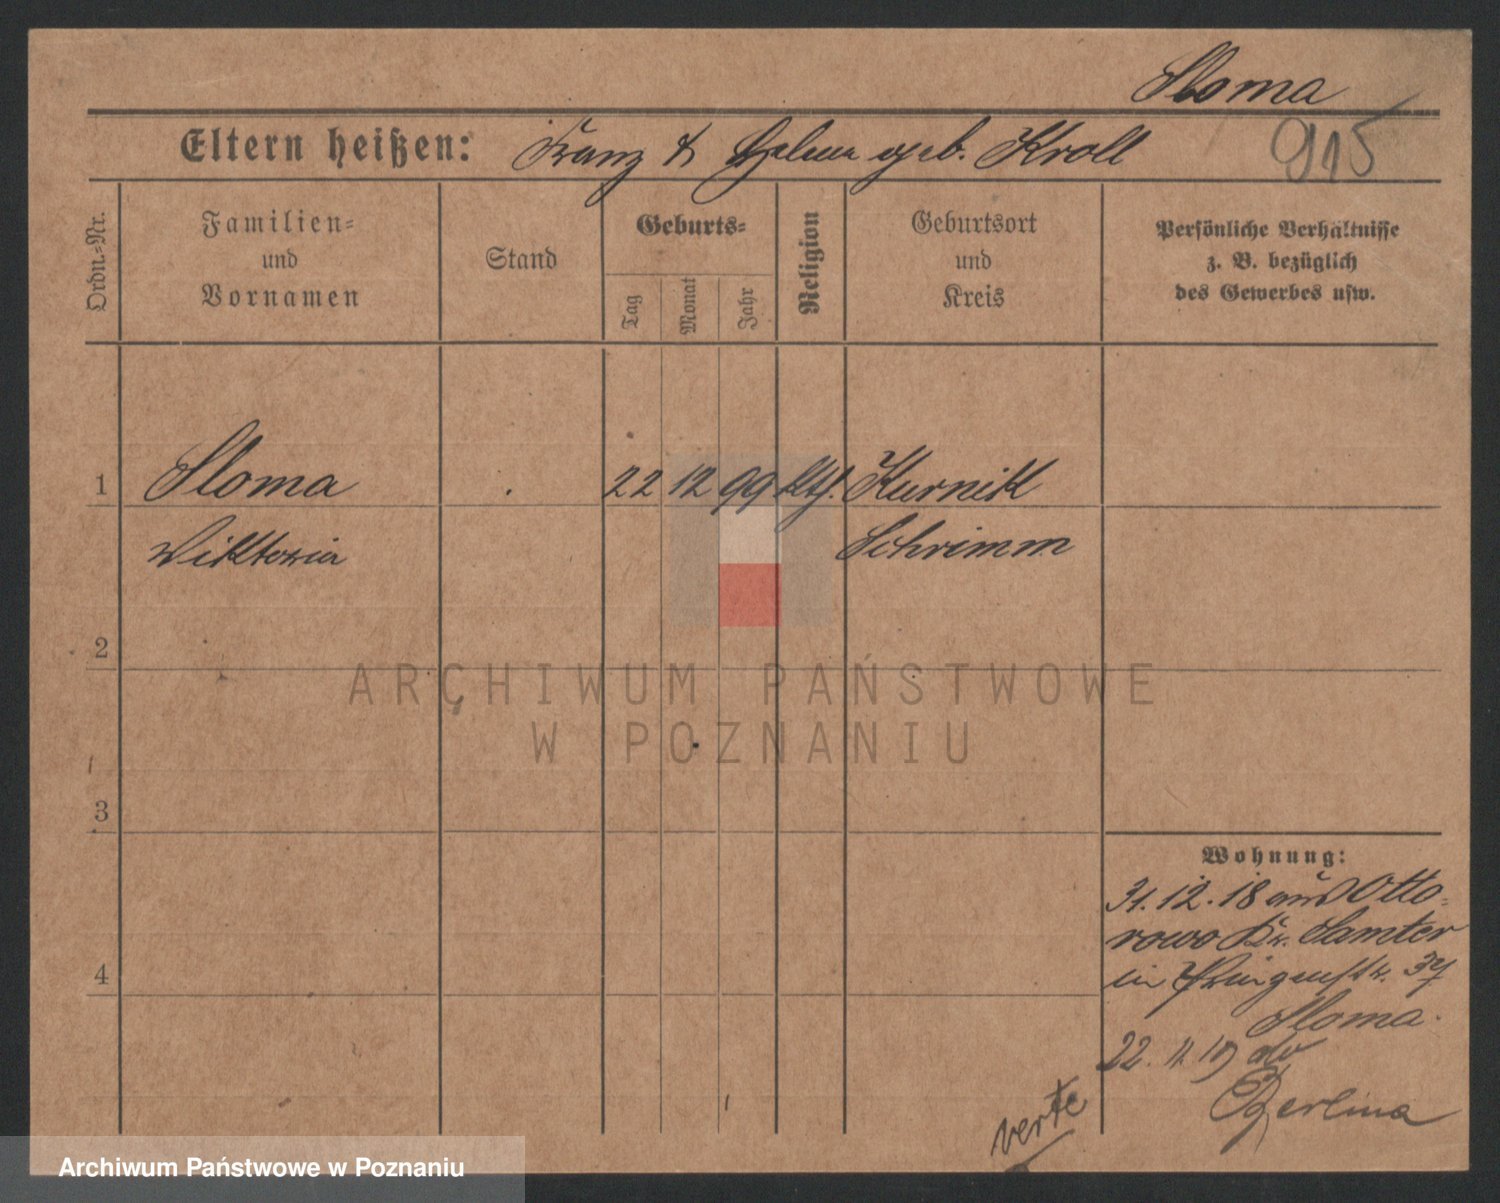 Sloma
Eltern heißen: Franz & Helene geb. Kroll
915
Ordn.-Nr.
Familien-
und
Vornamen
Stand
Geburts-
Tag
Monat
Jahr
Religion
Geburtsort
und
Kreis
Persönliche Verhältnisse
z. B. bezüglich
des Gewerbes usw.
1 Sloma . 22 12 99 kth. Kurnik
Wiktoria Schrimm
2
ARCHIWUM PAŃSTWOWE
W POZNANIU
3
Wohnung:
31.12.18 aus Otto-
rowo Kr. Samter
4
in 37
Sloma.
22. 11 19
Berlina
verte
Archiwum Państwowe w Poznaniu